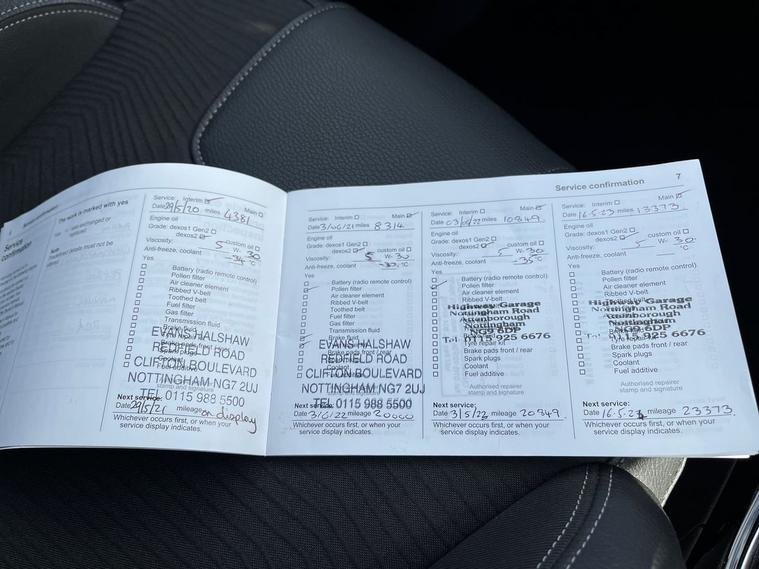 Service confirmation
The work is marked with yes
Service: Interim Main
Date 29/5/20 miles 4381
Engine oil
Grade: dexos1 Gen2
dexos2 custom oil
Viscosity: 5 W- 30
Anti-freeze, coolant -34 °C
Yes
Battery (radio remote control)
Pollen filter
Air cleaner element
Ribbed V-belt
Toothed belt
Fuel filter
Gas filter
Transmission fluid
EVANS HALSHAW
REDFIELD ROAD
CLIFTON BOULEVARD
NOTTINGHAM NG7 2UJ
TEL 0115 988 5500
Next service:
Date 29/5/21 mileage on display
Whichever occurs first, or when your
service display indicates.
Service: Interim Main
Date 3/06/21 miles 8314
Engine oil
Grade: dexos1 Gen2
dexos2 custom oil
Viscosity: 5 W- 30
Anti-freeze, coolant °C
Yes
Battery (radio remote control)
Pollen filter
Air cleaner element
Ribbed V-belt
Toothed belt
Fuel filter
Gas filter
Transmission fluid
Brake fluid
EVANS HALSHAW
Brake pads front / rear
REDFIELD ROAD
CLIFTON BOULEVARD
NOTTINGHAM NG7 2UJ
stamp and signature
TEL 0115 988 5500
Next service:
Date 3/6/22 mileage 20000
Whichever occurs first, or when your
service display indicates.
Service confirmation 7
Service: Interim Main
miles 10849
Engine oil
Grade: dexos1 Gen2
dexos2 custom oil
Viscosity: 5 W- 30
Anti-freeze, coolant -35 °C
Yes
Battery (radio remote control)
Pollen filter
Air cleaner element
Ribbed V-belt
Highway Garage
Nottingham Road
Attenborough
Nottingham
NG9 6DP
Tel: 0115 925 6676
Brake pads front / rear
Spark plugs
Coolant
Fuel additive
Authorised repairer
stamp and signature
Next service:
Date mileage 20849
Whichever occurs first, or when your
service display indicates.
Service: Interim Main
Date 16.5.23 miles 13373
Engine oil
Grade: dexos1 Gen2
dexos2 custom oil
Viscosity: 5 W- 30
Anti-freeze, coolant °C
Yes
Battery (radio remote control)
Pollen filter
Air cleaner element
Ribbed V-belt
Highway Garage
Nottingham Road
Attenborough
Nottingham
NG9 6DP
Tel: 0115 925 6676
Brake pads front / rear
Spark plugs
Coolant
Fuel additive
Authorised repairer
stamp and signature
Next service:
Date mileage 23373
Whichever occurs first, or when your
service display indicates.